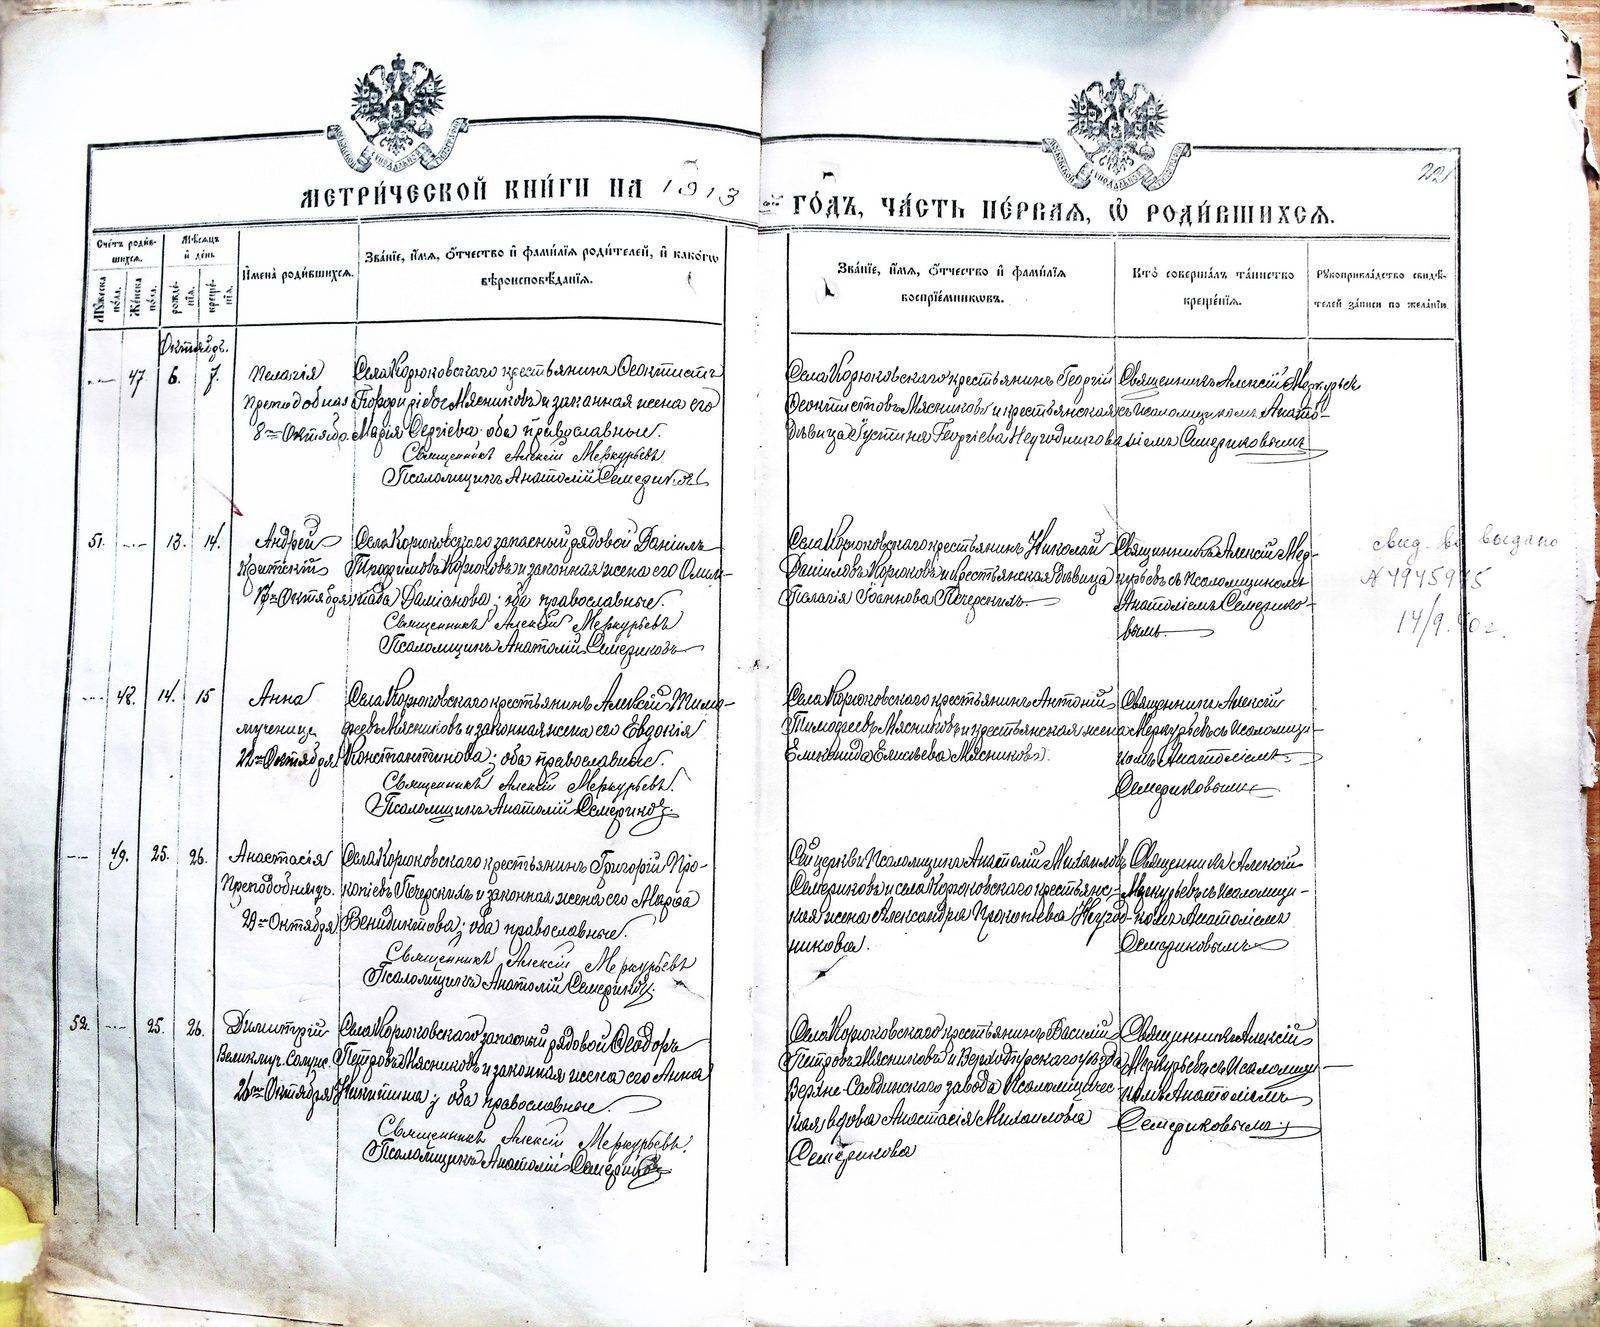 МЕТРИ́ЧЕСКОЙ КНИ́ГИ НА 1913 ГО́ДЪ, ЧА́СТЬ ПЕ́РВАЯ, Ѡ РОДИ́ВШИХСЯ.
221
Сче́тъ роди́в-
шихся.
Му́жеска по́ла.
Же́нска по́ла.
Мѣ́сяцъ и день
рожде́нїя.
креще́нїя.
Имена̀ роди́вшихся.
Зва́нїе, и́мя, о́тчество и фами́лїя роди́телей, и како́гѡ
вѣроисповѣ́данїя.
Зва́нїе, и́мя, о́тчество и фами́лїя
воспрїе́мникѡвъ.
Кто̀ соверша́лъ та́инство
креще́нїя.
Рукоприкла́дство свидѣ́-
телей за́писи по жела́нїю.
Октябрь.
47 6. 7. Пелагія
Преподобная
8го Октябр.
Села Корюковского крестьянинъ Ѳеоктистъ
Порфирьевъ Мясниковъ и законная жена его
Марія Сергіева оба православные.
Священникъ Алексій Меркурьевъ
Псаломщикъ Анатолій Семериков
Села Корюковского крестьянинъ Георгій
Ѳеоктистовъ Мясниковъ и крестьянская
дѣвица Іустина Георгіева Неугодникова
Священникъ Алексій Меркурьевъ
съ псаломщикомъ Анато-
ліемъ Семериковымъ
51. 13. 14. Андрей
Критскій
17го Октября
Села Корюковского запасный рядовой Даніилъ
Трофимовъ Корюковъ и законная жена его Олим-
піада Даміанова; оба православные.
Священникъ Алексій Меркурьевъ
Псаломщикъ Анатолій Семериковъ
Села Корюковского крестьянинъ Николай
Даніиловъ Корюковъ и крестьянская дѣвица
Пелагія Іоаннова Печерскихъ.
Священникъ Алексій Мер-
курьевъ съ Псаломщикомъ
Анатоліемъ Семерико-
вымъ.
свид. во выдано
14/9.
48. 14. 15 Анна
мученица
22го Октября
Села Корюковского крестьянинъ Алексій Тимо-
феевъ Мясниковъ и законная жена его Евдокія
Константинова; оба православные.
Священникъ Алексій Меркурьевъ.
Псаломщикъ Анатолій Семериковъ.
Села Корюковского крестьянинъ Антоній
Тимофеевъ Мясниковъ и крестьянская жена
Елисьева Мясникова.
Священникъ Алексій
Меркурьевъ съ псаломщи-
комъ Анатоліемъ
Семериковымъ
49. 25. 26. Анастасія
Преподобномуч.
29го Октября
Села Корюковского крестьянинъ Григорій Про-
копіевъ Печерскихъ и законная жена его Марфа
Венидиктова; оба православные.
Священникъ Алексій Меркурьевъ
Псаломщикъ Анатолій Семериковъ.
Сей церкви Псаломщикъ Анатолій Михаиловъ
Семериковъ и села Корюковского крестьянс-
кая жена Александра Прокопьева Неугод-
никова.
Священникъ Алексій
Меркурьевъ съ псаломщи-
комъ Анатоліемъ
Семериковымъ
52. 25. 26. Димитрій
Великмуч. Солунс.
26го Октября
Села Корюковского запасный рядовой Ѳеодоръ
Петровъ Мясниковъ и законная жена его Анна
Никитина; оба православные.
Священникъ Алексій Меркурьевъ.
Псаломщикъ Анатолій Семериковъ
Села Корюковского крестьянинъ Василій
Петровъ Мясниковъ и Верхотурского уѣзда
Верхне-Салдинского завода Псаломщичес-
кая вдова Анастасія Михаиловна
Семерикова
Священникъ Алексій
Меркурьевъ съ Псаломщи-
комъ Анатоліемъ
Семериковымъ.